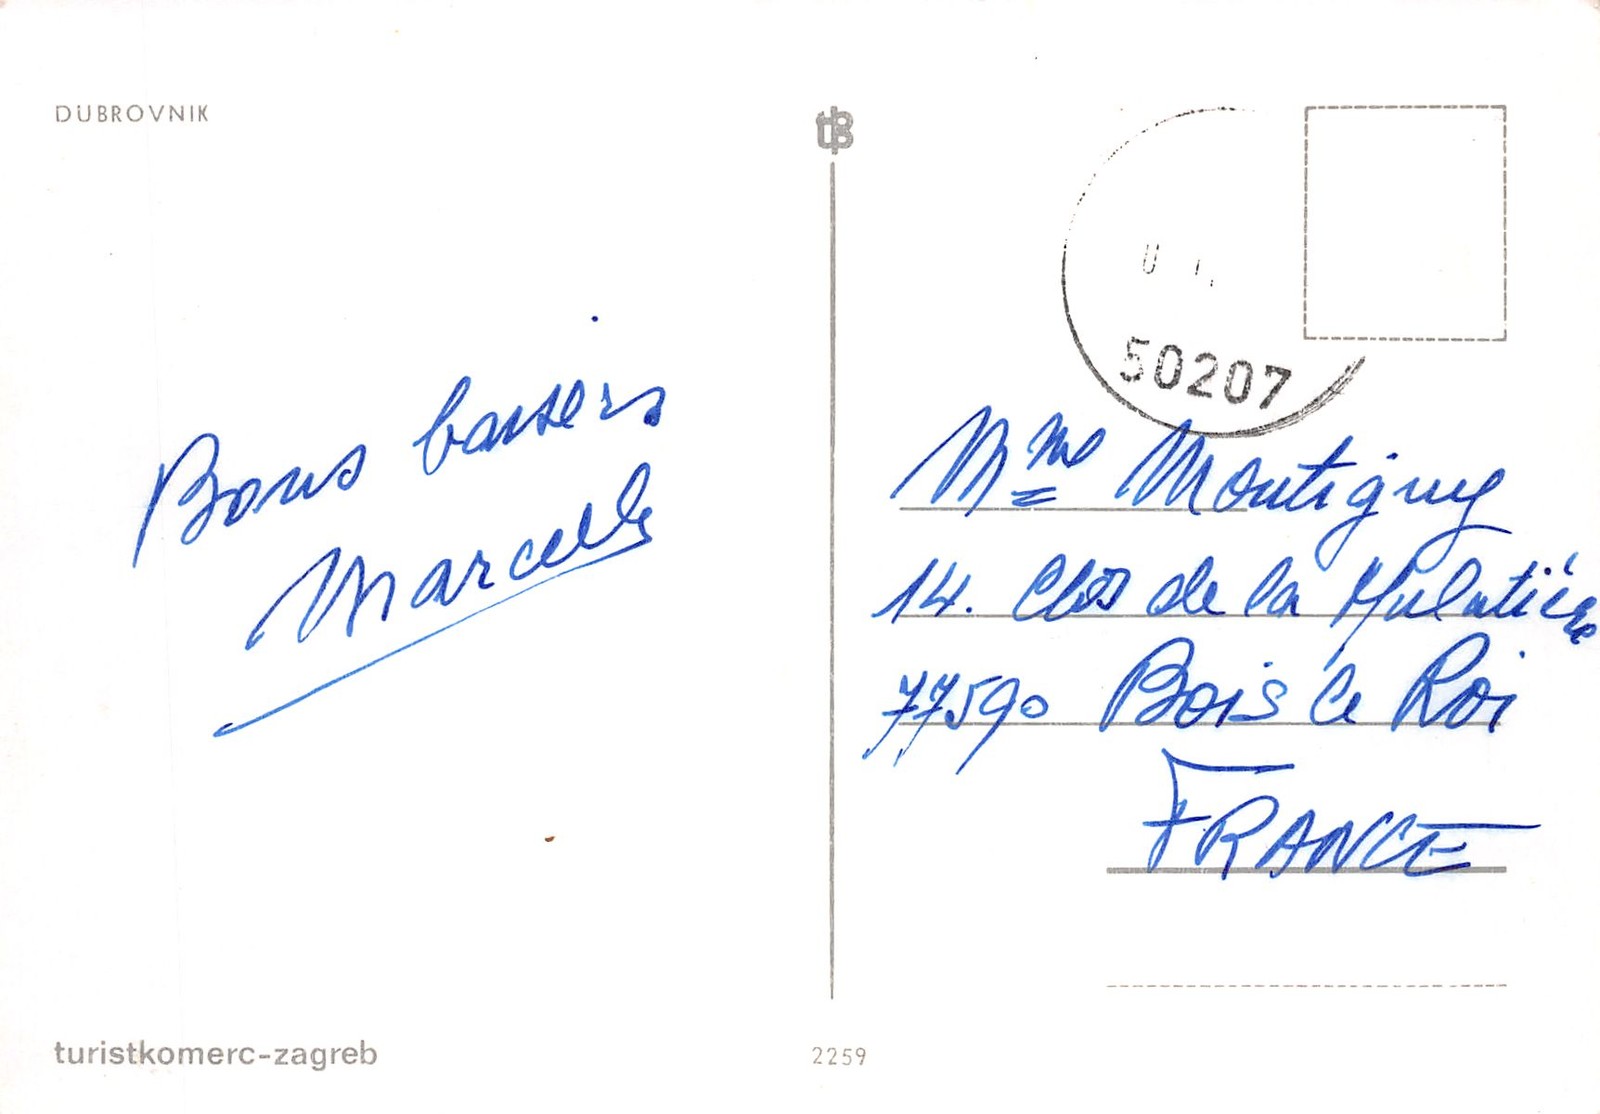 DUBROVNIK
Bons baisers
Marcelle
50207
Mme Montigny
14. Clos de la Mulatière
77590 Bois le Roi
FRANCE
turistkomerc-zagreb
2259